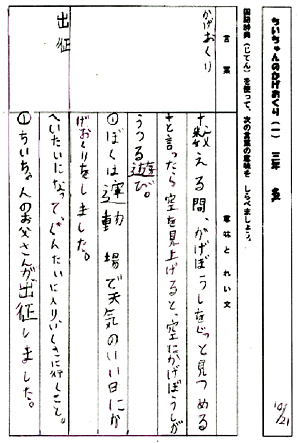 ちいちゃんのかげおくり（一） 三年
国語辞典（じてん）を使って、次の言葉の意味を しらべましょう。
言葉
意味と れい文
かげおくり
十数える間、かげぼうしをじっと見つめる
十と言ったら空を見上げると、空にかげぼうしが
うつる遊び。
①ぼくは運動場で天気のいい日にか
げおくりをしました。
出征
へいたいになって、ぐんたいに入り、いくさに行くこと。
①ちいちゃんのお父さんが、出征しました。
10/21